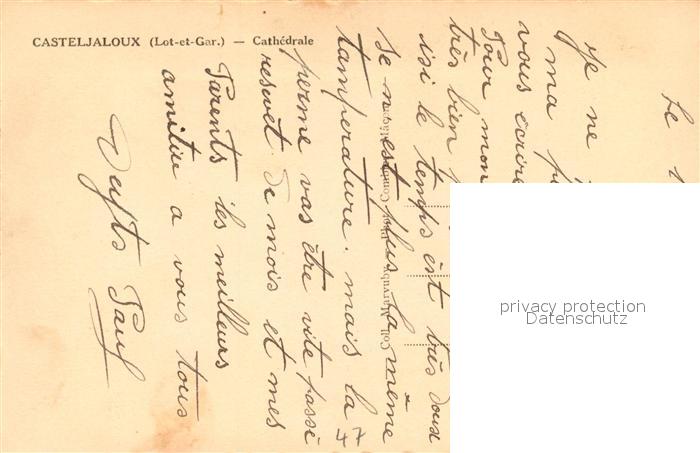 CASTELJALOUX (Lot-et-Gar.) — Cathédrale
Le
Je ne
ma
vous écrire
Pour mon
très bien
isi le temps est très doux
se n'est plus la même
tamperature. mais la
perme vas être vite passé
resovet de mois et mes
Parents les meilleurs
amitiée a vous tous
Paul
47
privacy protection
Datenschutz